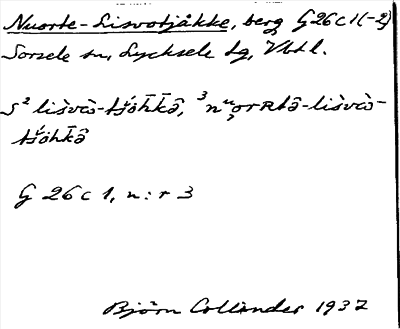 Nuorte-Lisvotjåkke, berg G26c1(-2)
Sorsele sn, Lycksele lg, Vbtl.
S ² lìsvɑ̀ɔ-tšo̅h̅k̅ɑ̂, ³nᵘ̯orʀtɑ̂-lìsvɑ̀ɔ-
tšöh̅k̅ɑ̂
G 26 c 1, n:r 3
Björn Collinder 1937